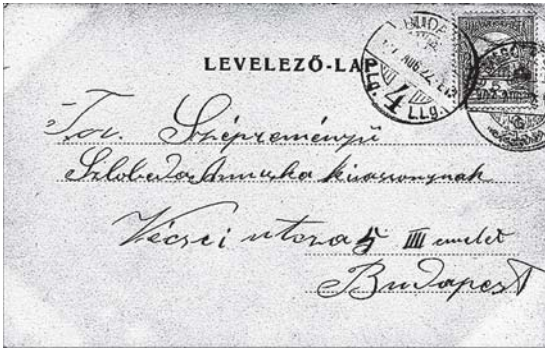 LEVELEZŐ-LAP
BUDA
AUG. 22.
4
Szépreményű
Szloboda Annuska kisasszonynak
Vécsei utcza 5 III emelet
Budapest